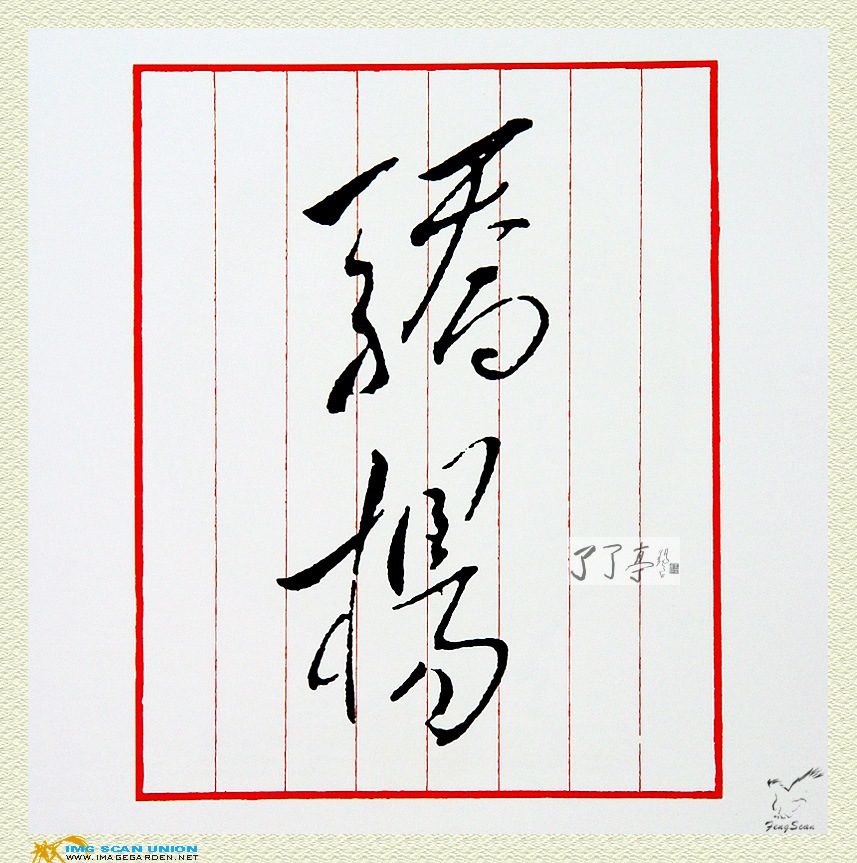 骄杨
了了亭
FengScan
IMG SCAN UNION
WWW.IMAGEGARDEN.NET